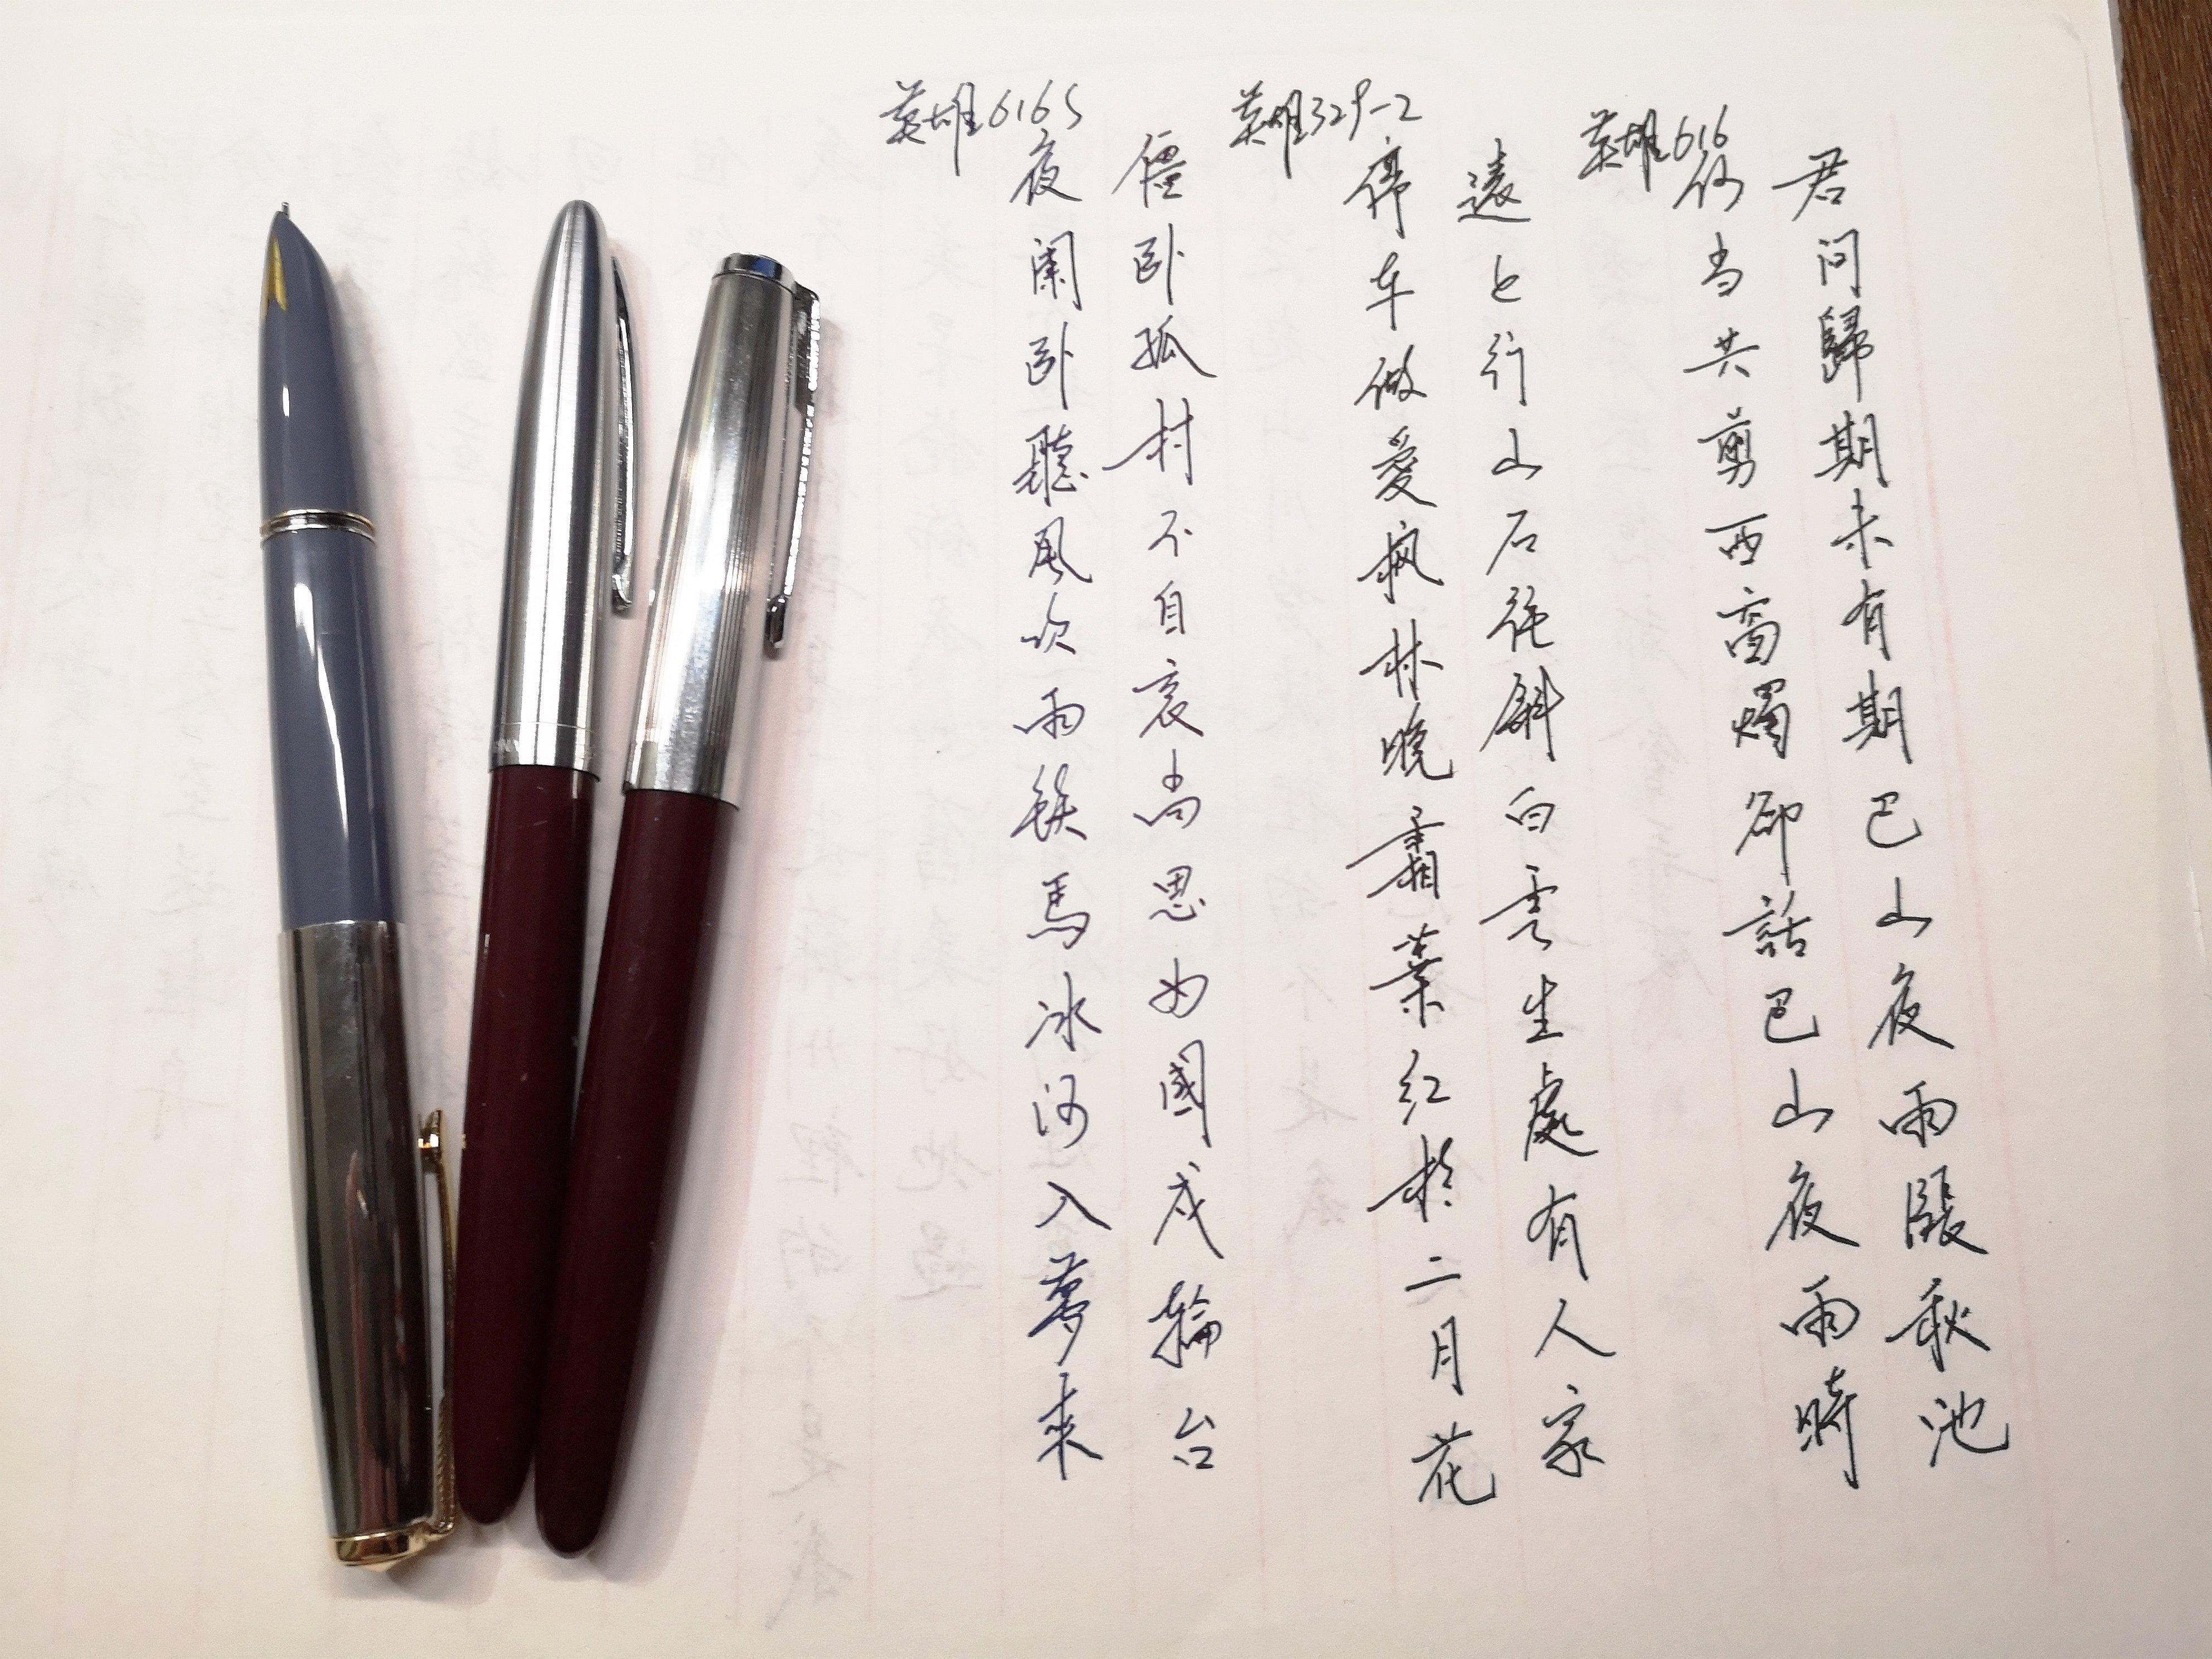 君问歸期未有期巴山夜雨張秋池
何当共剪西窗燭卻話巴山夜雨時
英雄616
遠上行山石徑斜白雲生處有人家
停车做愛枫林晚霜葉红於二月花
英雄329-2
僵卧孤村不自哀尚思为國戍輪台
夜阑卧聽風吹雨铁馬冰河入夢來
英雄616S